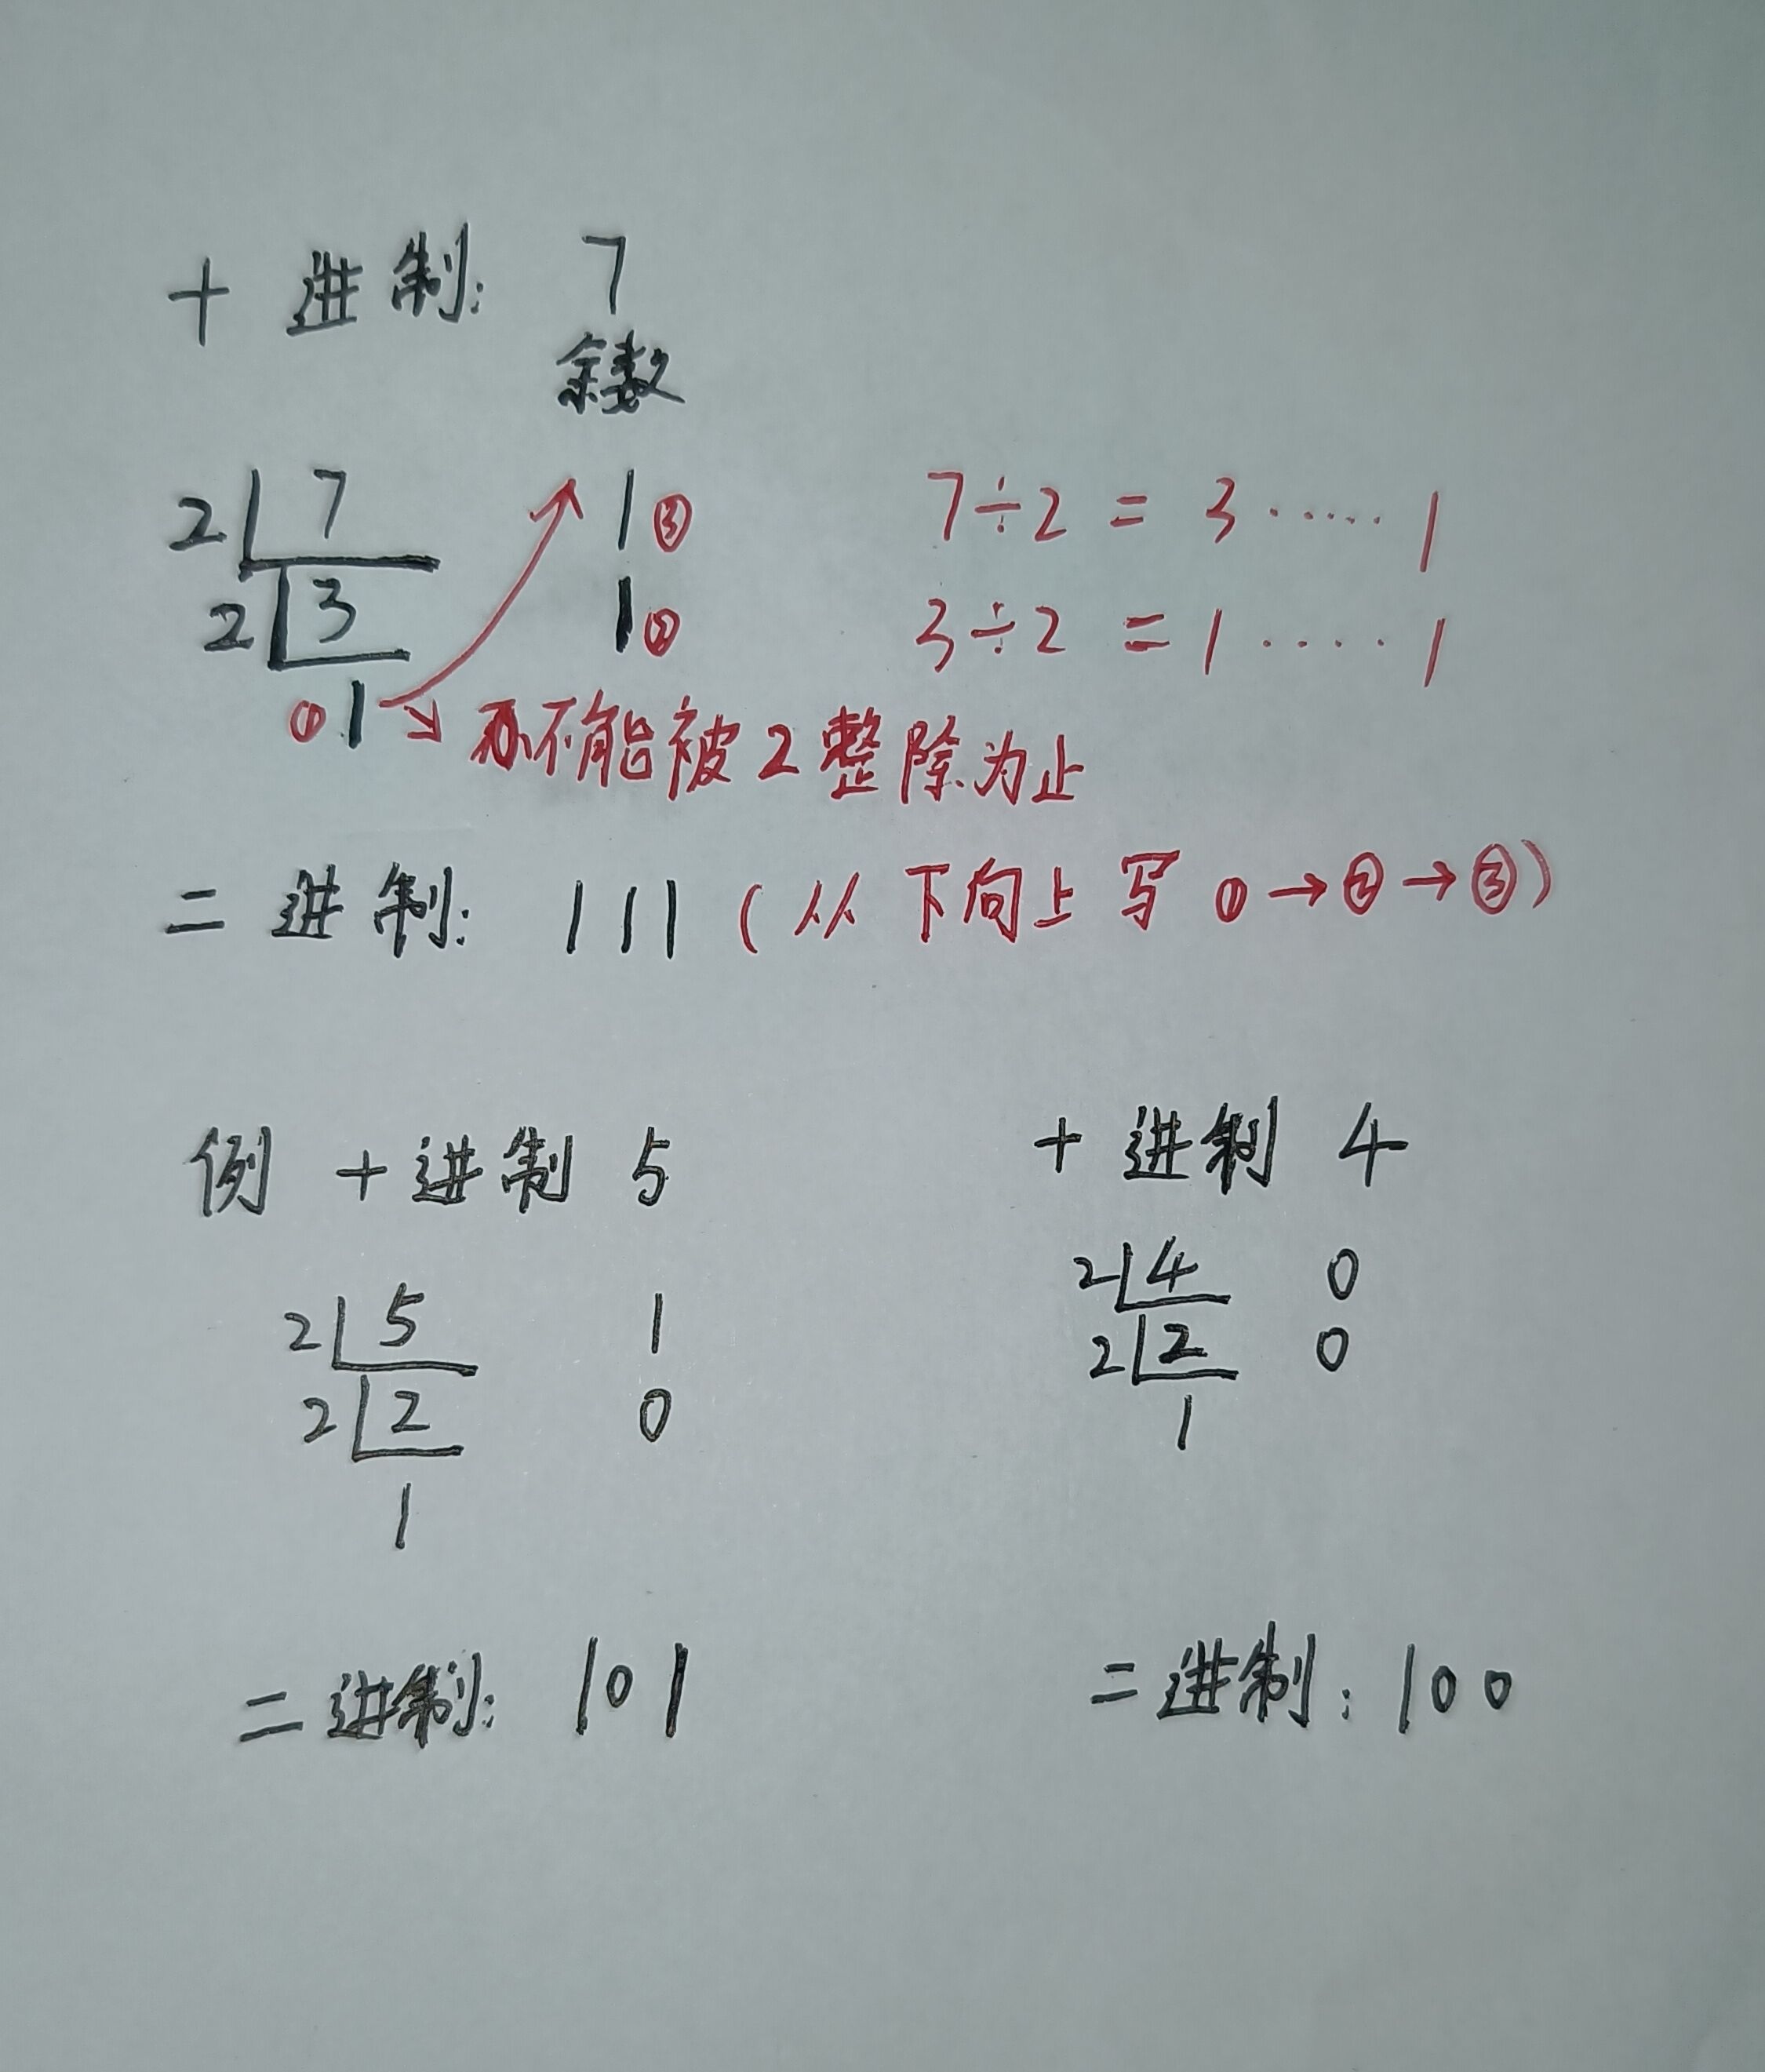 十进制: 7
余数
2 7 1 ③ 7÷2 = 3 ····· 1
2 3 1 ② 3÷2 = 1 ···· 1
① 1 不能被2整除为止
二进制: 111 (从下向上写 ①→②→③)
例 十进制 5
2 5 1
2 2 0
1
二进制: 101
十进制 4
2 4 0
2 2 0
1
二进制: 100